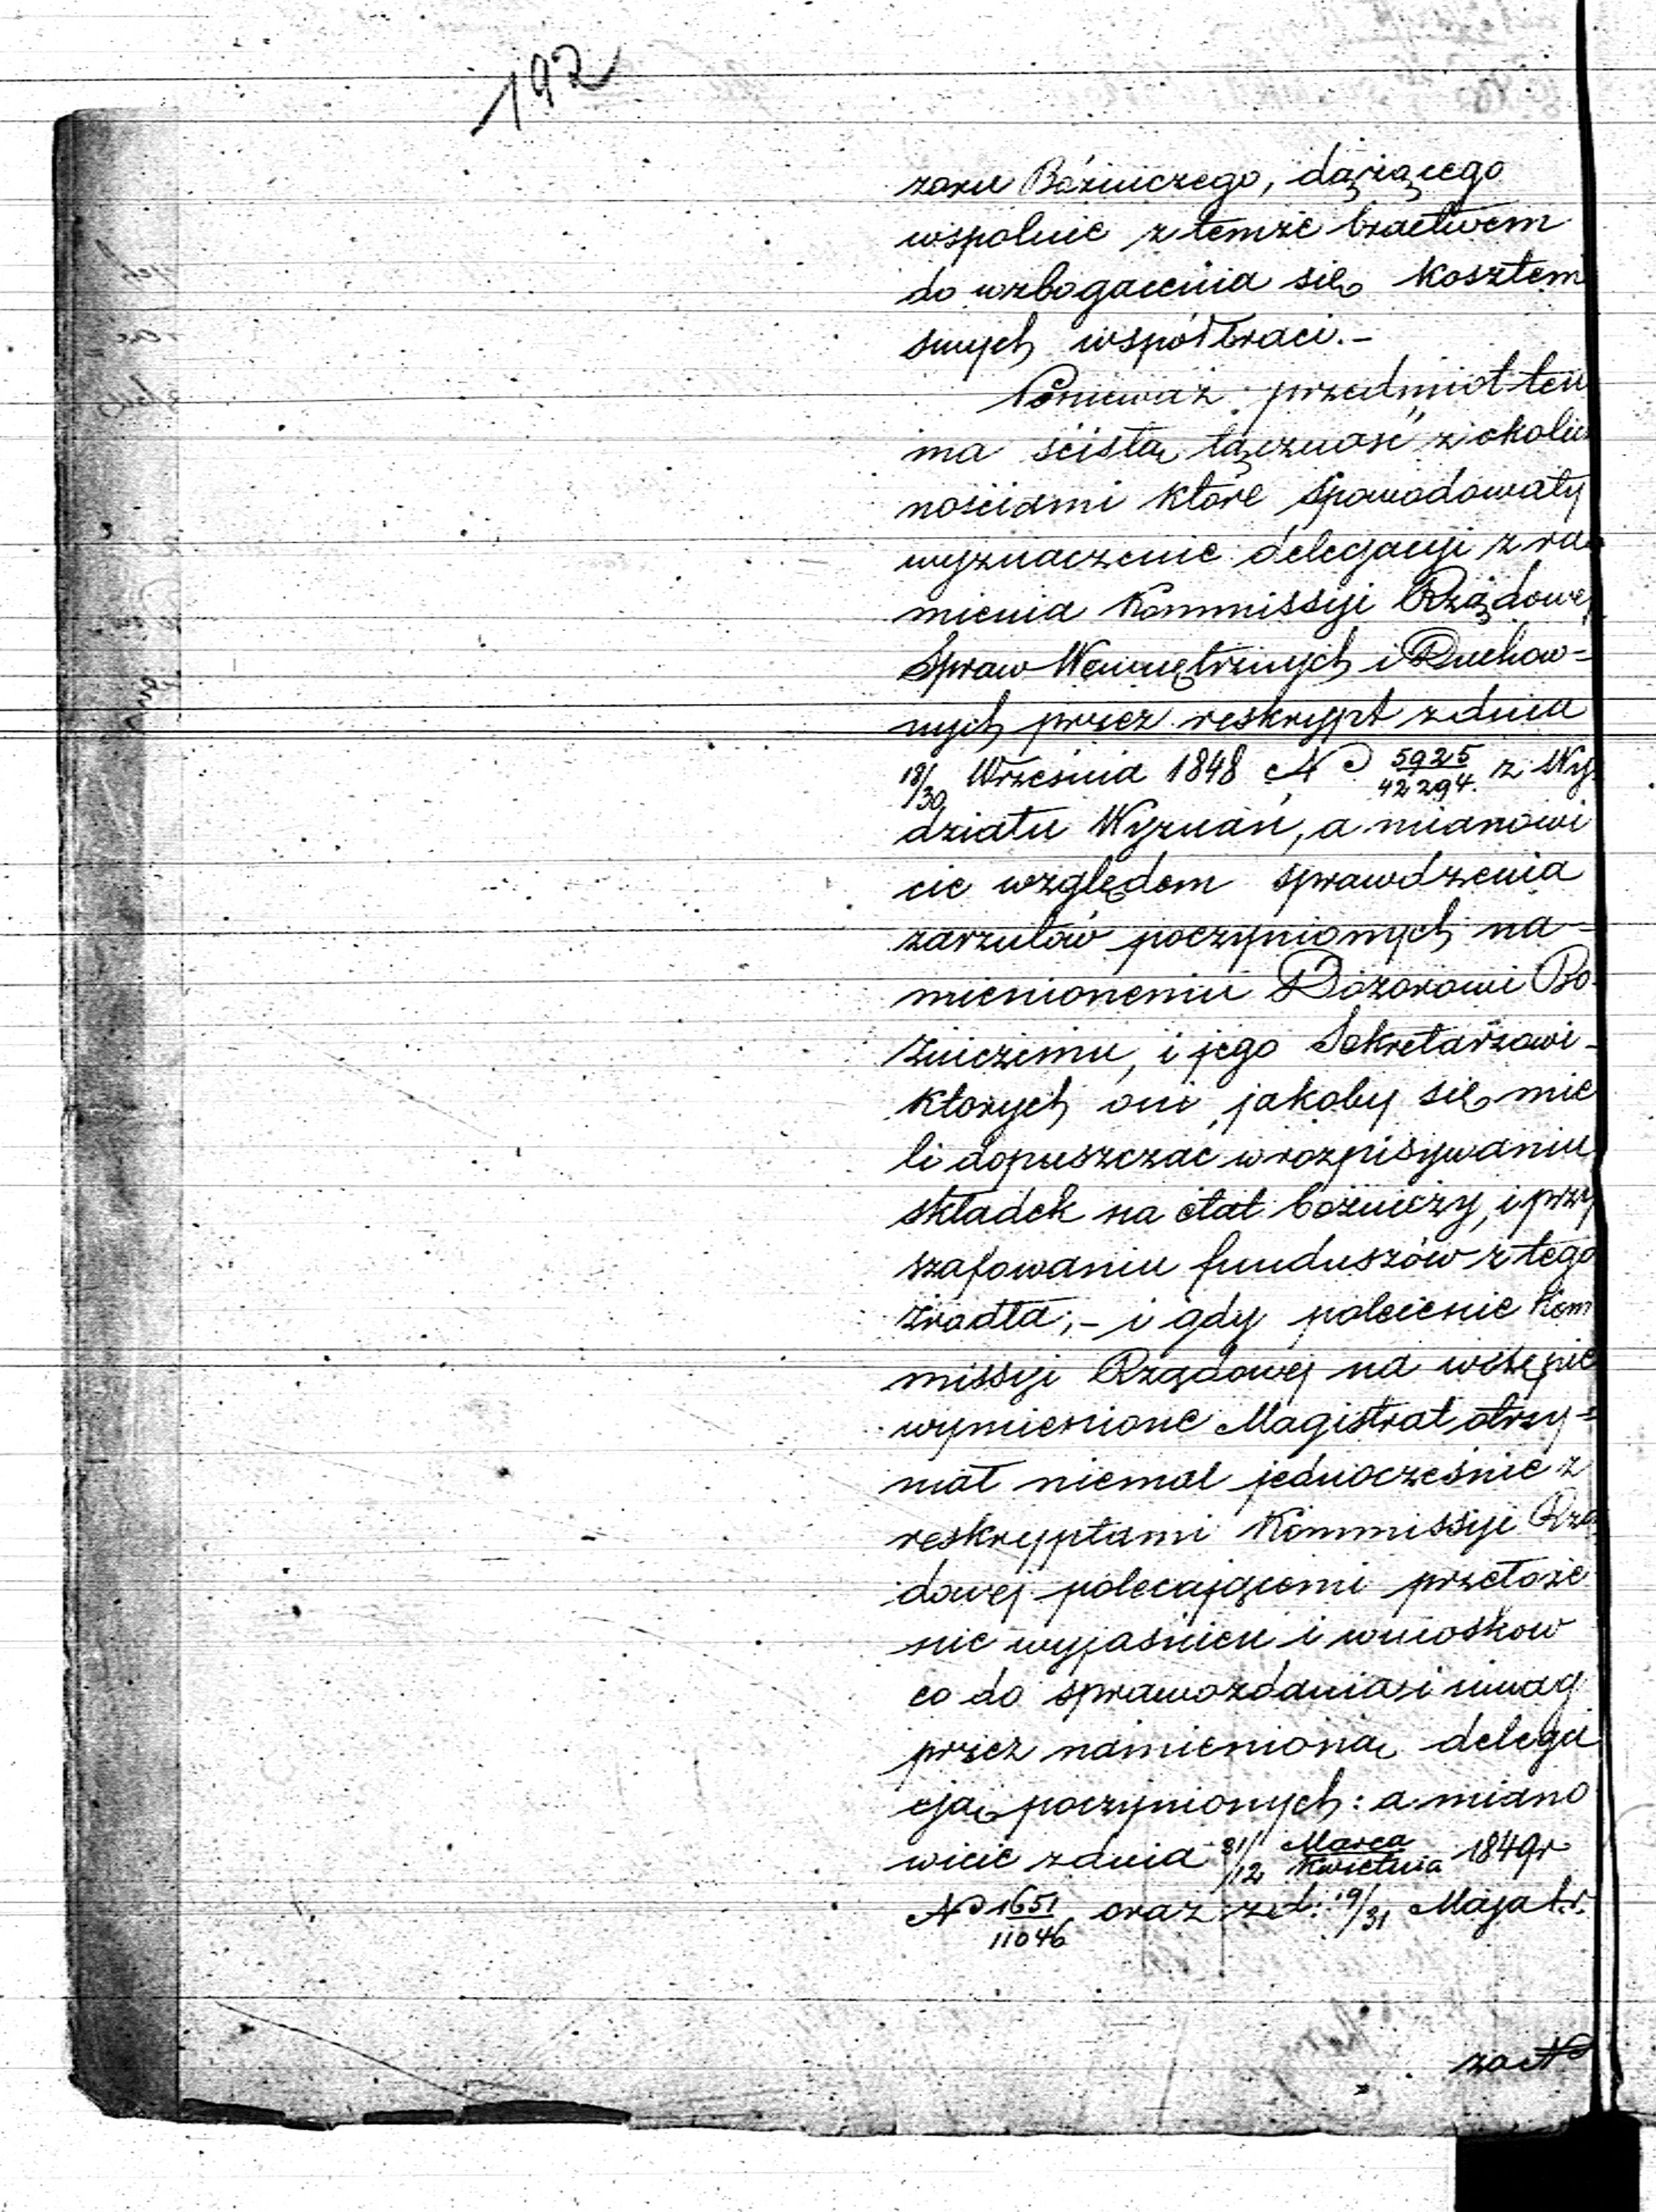 192
zoru Bóżniczego, dążącego
wspolnie z temże bractwem
do wzbogacenia się kosztem
swych współbraci.-
Ponieważ przedmiot ten
ma ścisłą łączność z okolicz
nościami które spowodowały
wyznaczenie delegacyi z ra
mienia Kommissyi Rządowej
Spraw Wewnętrznych i Duchow=
nych przez reskrypt z dnia
18/30 Września 1848 No 5925/42294. z Wy
działu Wyznań, a mianowi
cie względem sprawdzenia
zarzutów poczynionych na=
mienionemu Dozorowi Bo
żniczemu, i jego Sekretarzowi-
ktorych oni jakoby się mie
li dopuszczać w rozpisywaniu
składek na etat bożniczy, i przy
szafowaniu funduszów z tego
źrodła;- i gdy polecenie Kom
missyi Rządowej na wstępie
wymienione Magistrat otrzy=
mał niemal jednocześnie z
reskryptami Kommissyi Rzą
dowej polecającemi przełoże
nie wyjaśnień i wniosków
co do sprawozdania i uwag
przez namienioną delega
cją poczynionych: a miano
wicie z dnia 31/12 Marca/Kwietnia 1849r
No 1651/11046 oraz z d: 19/31 Maja t.r.
za No